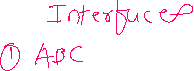 Interfaces
① ABC